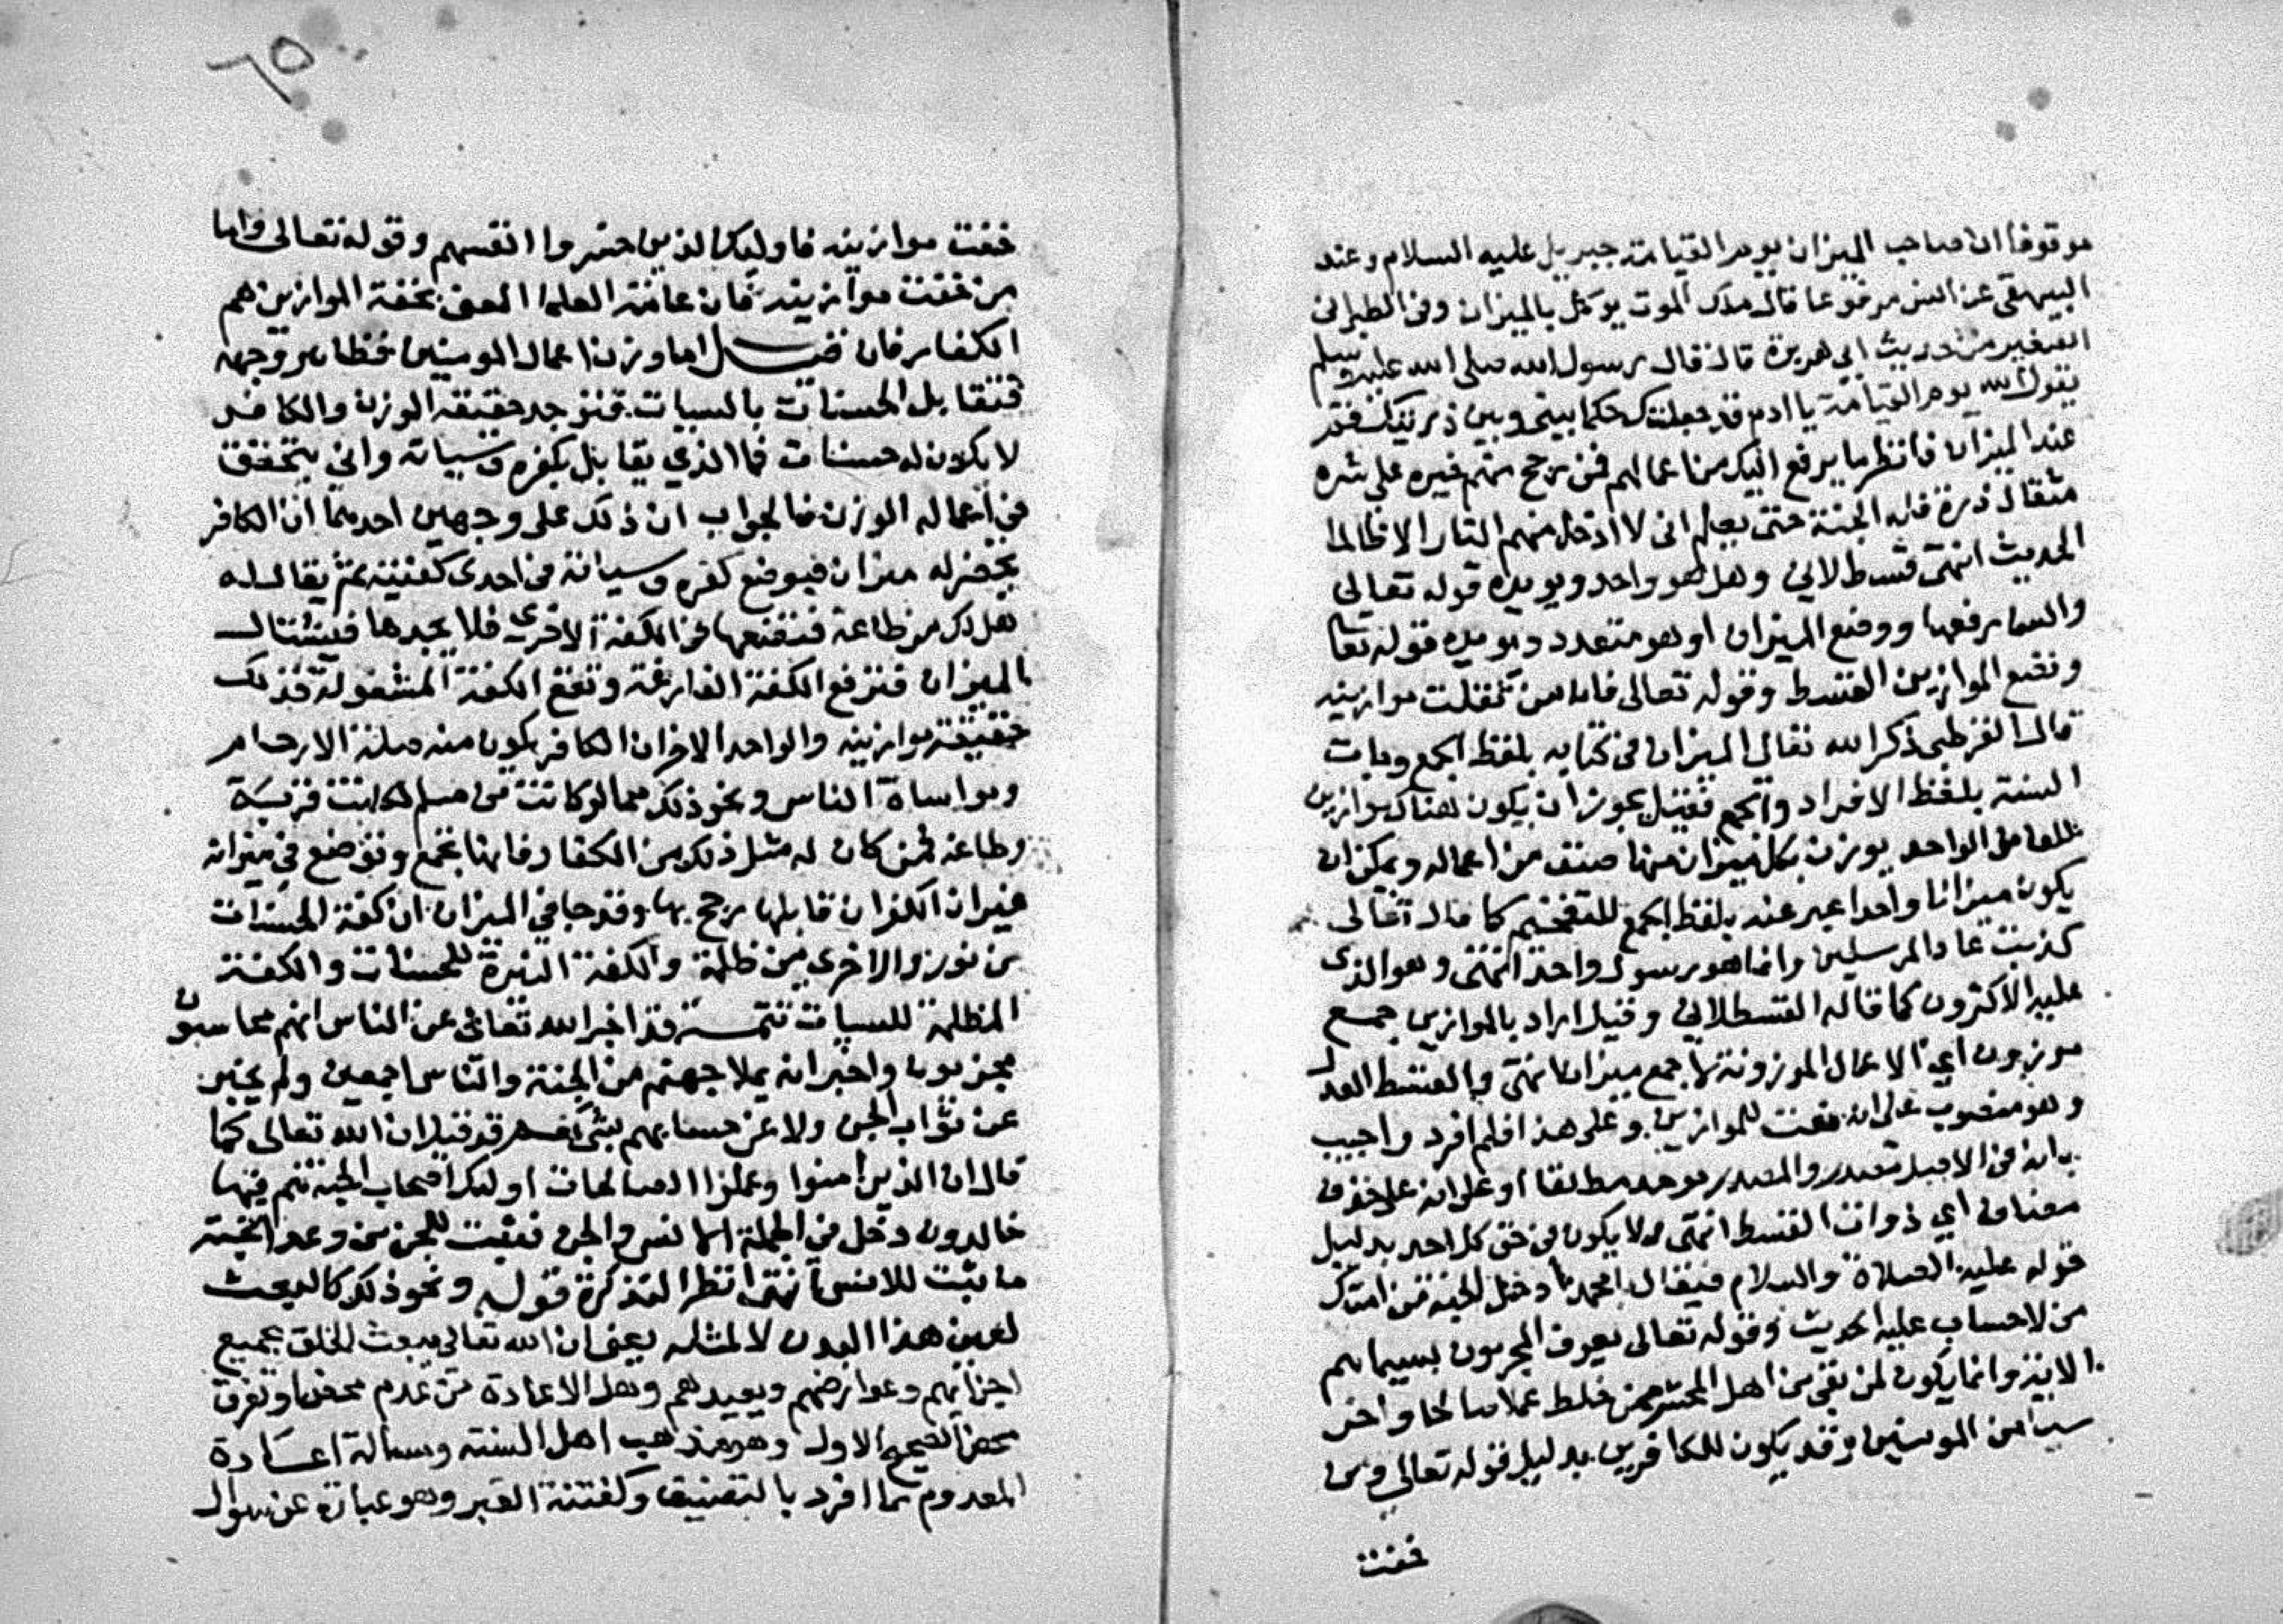 موقوفا ان صاحب الميزان يوم القيامة جبريل عليه السلام وعند
البيهقي عن انس مرفوعا قال ملك الموت يوكل بالميزان وفي الطبراني
الصغير من حديث ابي هريرة قال قال رسول الله صلى الله عليه وسلم
يقول الله يوم القيامة يا ادم قد جعلتك حكما بيني وبين ذريتك فقم
عند الميزان فانظر ما يرفع اليك من اعمالهم فمن رجح منهم خيره على شره
مثقال ذرة فله الجنة حتى يعلم اني لا ادخل منهم النار الا ظالما
الحديث انتهى قسطلاني وهل هو واحد ويويده قوله تعالى
والسما رفعها ووضع الميزان او هو متعدد ويويده قوله تعا
ونضع الموازين القسط وقوله تعالى فاما من ثقلت موازينه
قال القرطبي ذكر الله تعالى الميزان في كتابه بلفظ الجمع وجات
السنة بلفظ الافراد والجمع فقيل يجوز ان يكون هناك موازين
للعامل الواحد يوزن بكل ميزان منها صنف من اعماله ويمكن ان
يكون ميزانا واحدا عبر عنه بلفظ الجمع للتفخيم كما قال تعالى
كذبت عاد المرسلين وانما هو رسول واحد انتهى وهو الذي
عليه الاكثرون كما قاله القسطلاني وقيل اراد بالموازين جمع
موزون اي الاعمال الموزونة لا جمع ميزان انتهى والقسط العدل
وهو منصوب على انه نعت للموازين وعلى هذا فلم افرد واجيب
بانه في الاصل مصدر والمصدر يوحد مطلقا او على انه على حذف
مضاف اي ذوات القسط انتهى ولا يكون في حق كل احد بدليل
قوله عليه الصلاة والسلام فيقال يا محمد ادخل الجنة من امتك
من لا حساب عليه الحديث وقوله تعالى يعرف المجرمون بسيماهم
الاية وانما يكون لمن بقي من اهل المحشر ممن خلط عملا صالحا واخر
سيئا من المومنين وقد يكون للكافرين بدليل قوله تعالى ومن
خفت
٦٥
خفت موازينه فاوليك الذين خسروا انفسهم وقوله تعالى واما
من خفت موازينه فان عامة العلما المعنى بخفة الموازين هم
الكفار فان قيل اما وزن اعمال المومنين فظاهر وجهه
فتتقابل الحسنات بالسيات فتوجد حقيقة الوزن والكافر
لا يكون له حسنات فما الذي يقابل بكفره وسياته واني يتحقق
في اعماله الوزن فالجواب ان ذلك على وجهين احدهما ان الكافر
يحضر له ميزان فيوضع كفره وسياته في احدى كفتيه ثم يقال له
هل لك من طاعة فنضعها في الكفة الاخرى فلا يجدها فيشال
الميزان فترفع الكفة الفارغة وتقع الكفة المشغولة فذلك
خفيفة موازينه والواحد الاخر ان الكافر يكون منه صلة الارحام
ومواساة الناس ونحو ذلك مما لو كانت من مسلم لكانت قربة
وطاعة فمن كان له مثل ذلك من الكفار فانها تجمع وتوضع في ميزانه
غير ان الكفر ان قابلها رجح بها وقد جا في الميزان ان كفة الحسنات
من نور والاخرى من ظلمة والكفة النيرة للحسنات والكفة
المظلمة للسيات تتمة قد اخبر الله تعالى عن الناس انهم محاسبون
مجزيون واخبر انه يملا جهنم من الجنة والناس اجمعين ولم يخبر
عن ثواب الجن ولا عن حسابهم بشي نعم قد قيل ان الله تعالى كما
قال ان الذين امنوا وعملوا الصالحات اوليك اصحاب الجنة هم فيها
خالدون دخل في الجملة الانس والجن فثبت للجن من وعد الجنة
ما ثبت للانس انتهى انظر التذكرة قوله ونحو ذلك كالبعث
لعين هذا البدن لا لمثله يعني ان الله تعالى يبعث الخلق بجميع
اجزايهم وعوارضهم ويعيدهم وهل الاعادة عن عدم محض او تفرق
محض الصحيح الاول وهو مذهب اهل السنة ومسالة اعادة
المعدوم مما افرد بالتصنيف وكفتنة القبر وهو عبارة عن سوال